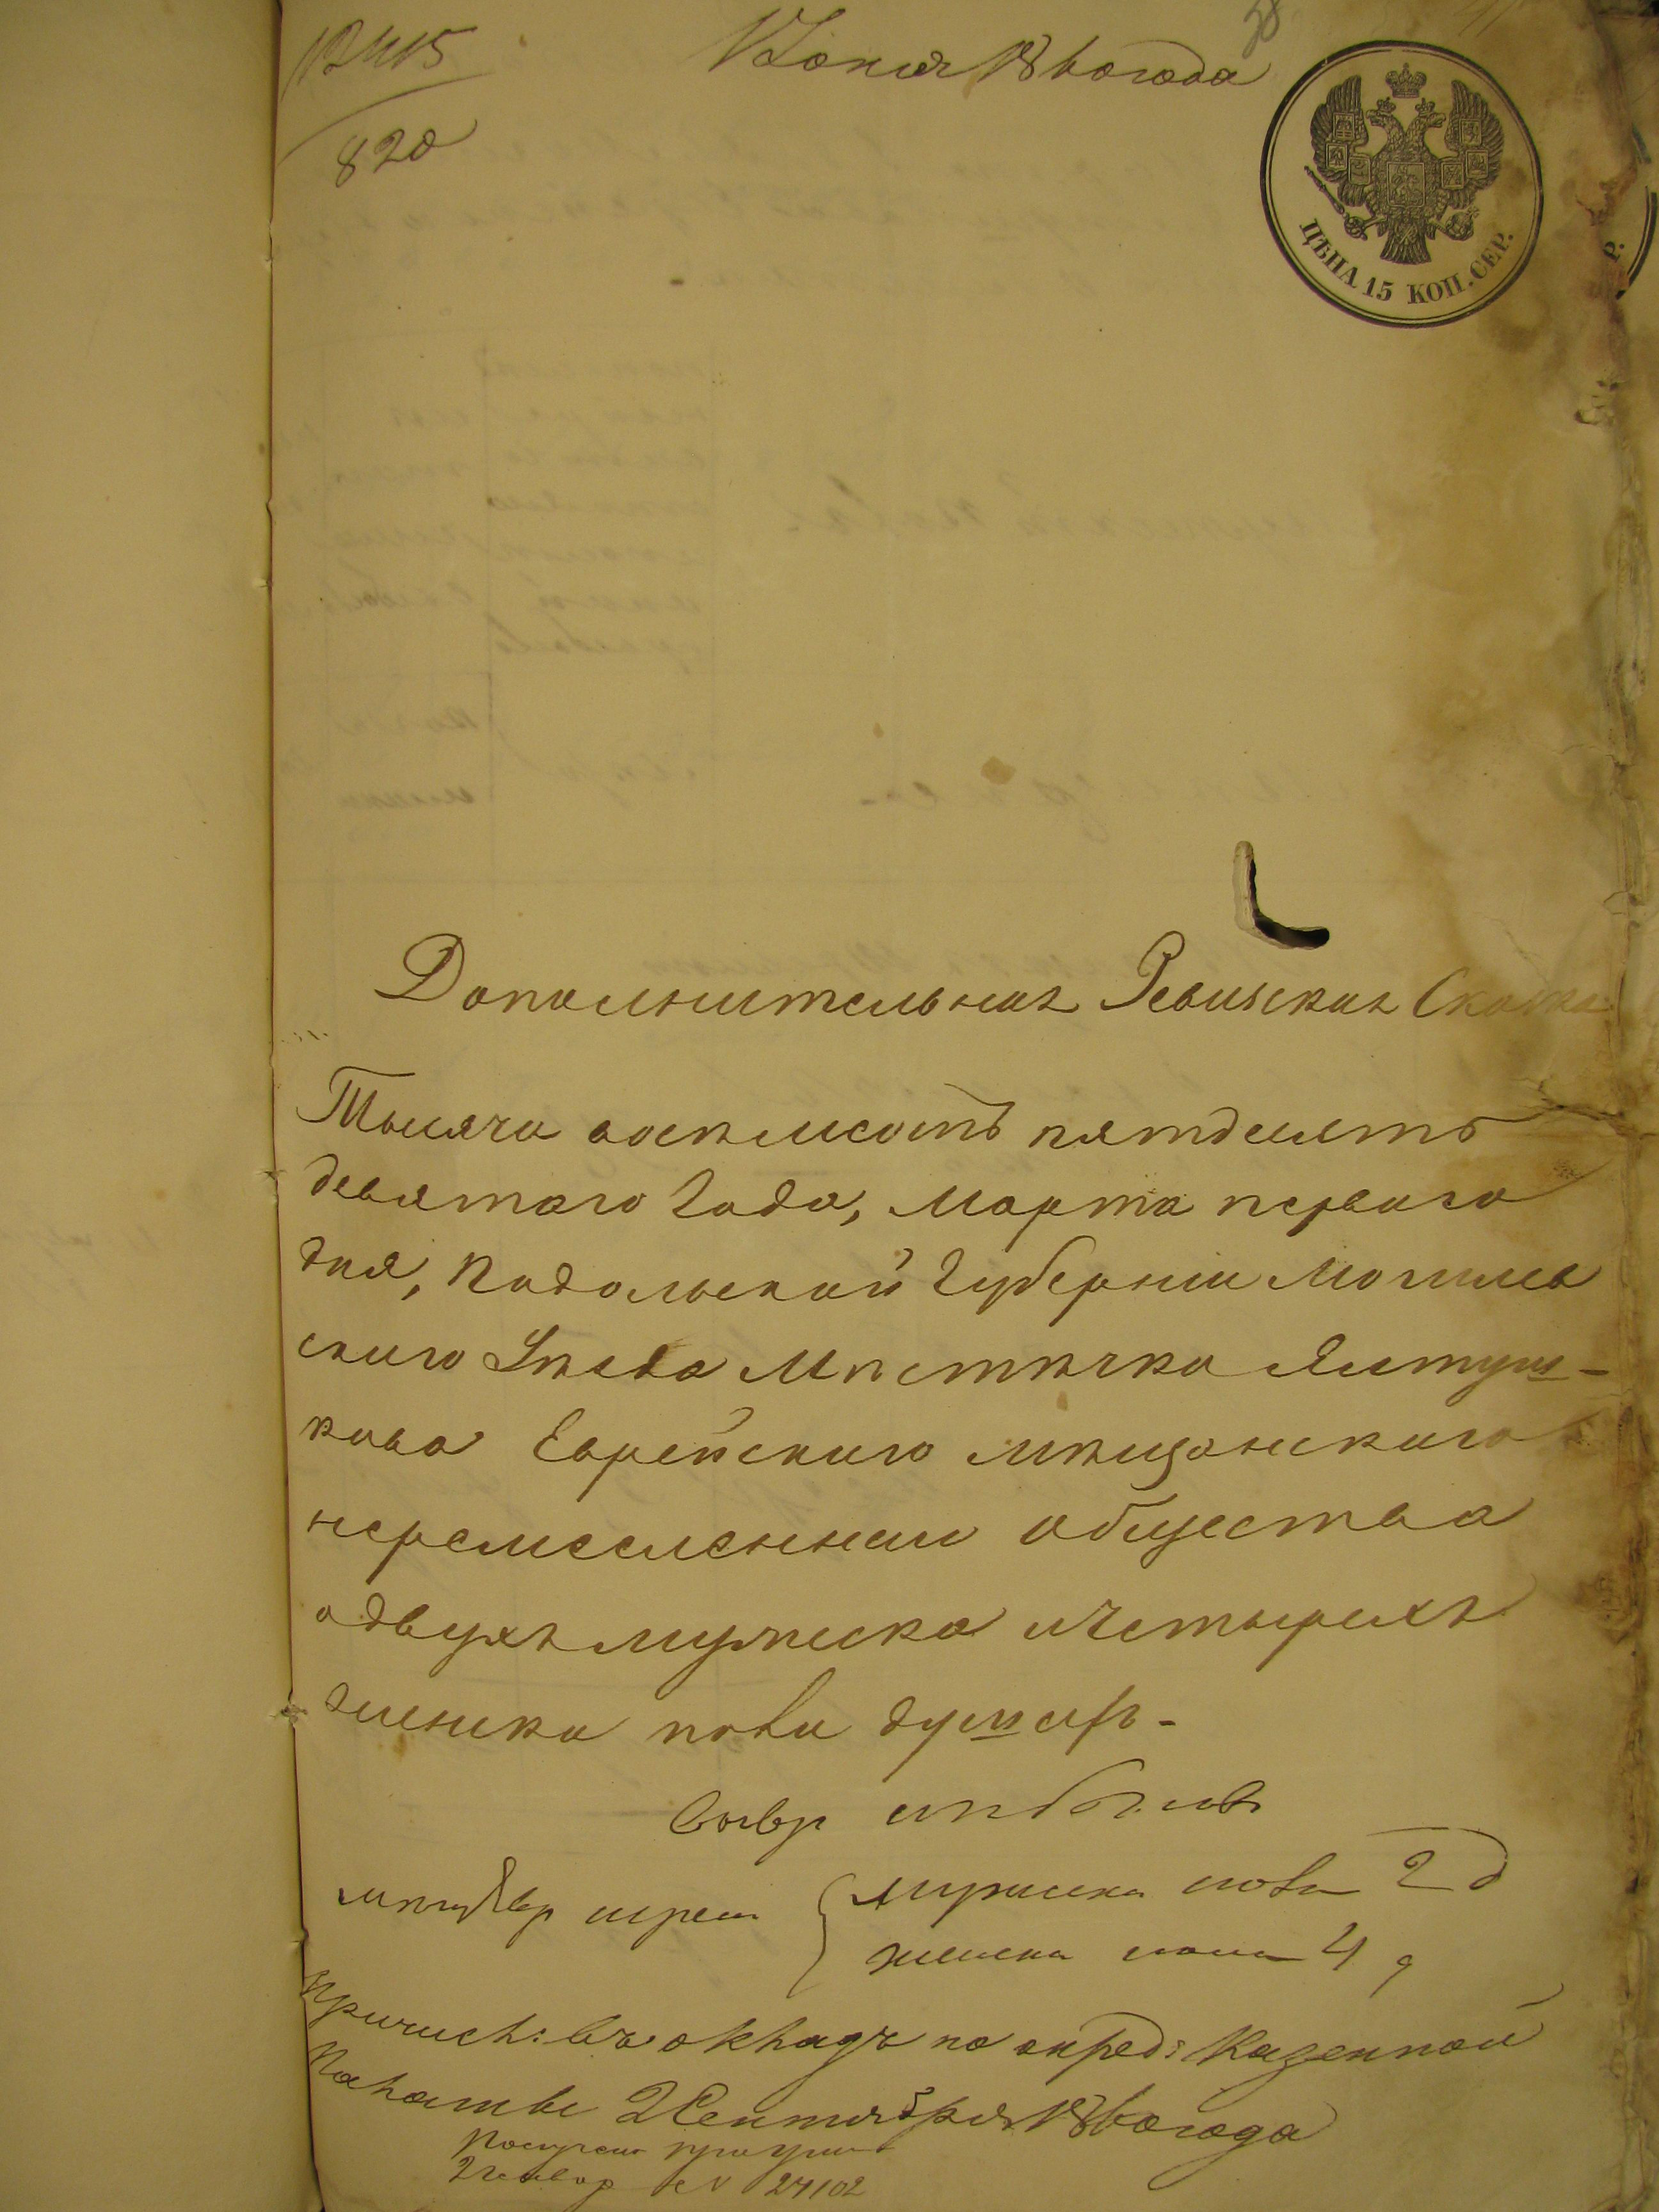 12415
820
Копія 1860 года
38
ЦѢНА 15 КОП. СЕР.
Дополнительная Ревизская Сказка
Тысяча восемсотъ пятдесятъ
девятаго Года, Марта перваго
дня, Подольской Губерніи Могилев
скаго Уѣзда Мѣстѣчка Ялтуш-
кова Еврейскаго мѣщанскаго
неремесленнаго общества
о двухъ мужеска и Четырехъ
женска пола душахъ -
мужеска пола 2 д
женска пола 4 д
Причисл: въ окладъ по опред: Казенной
Палаты 2 Сентября 1860 года
№ 24102